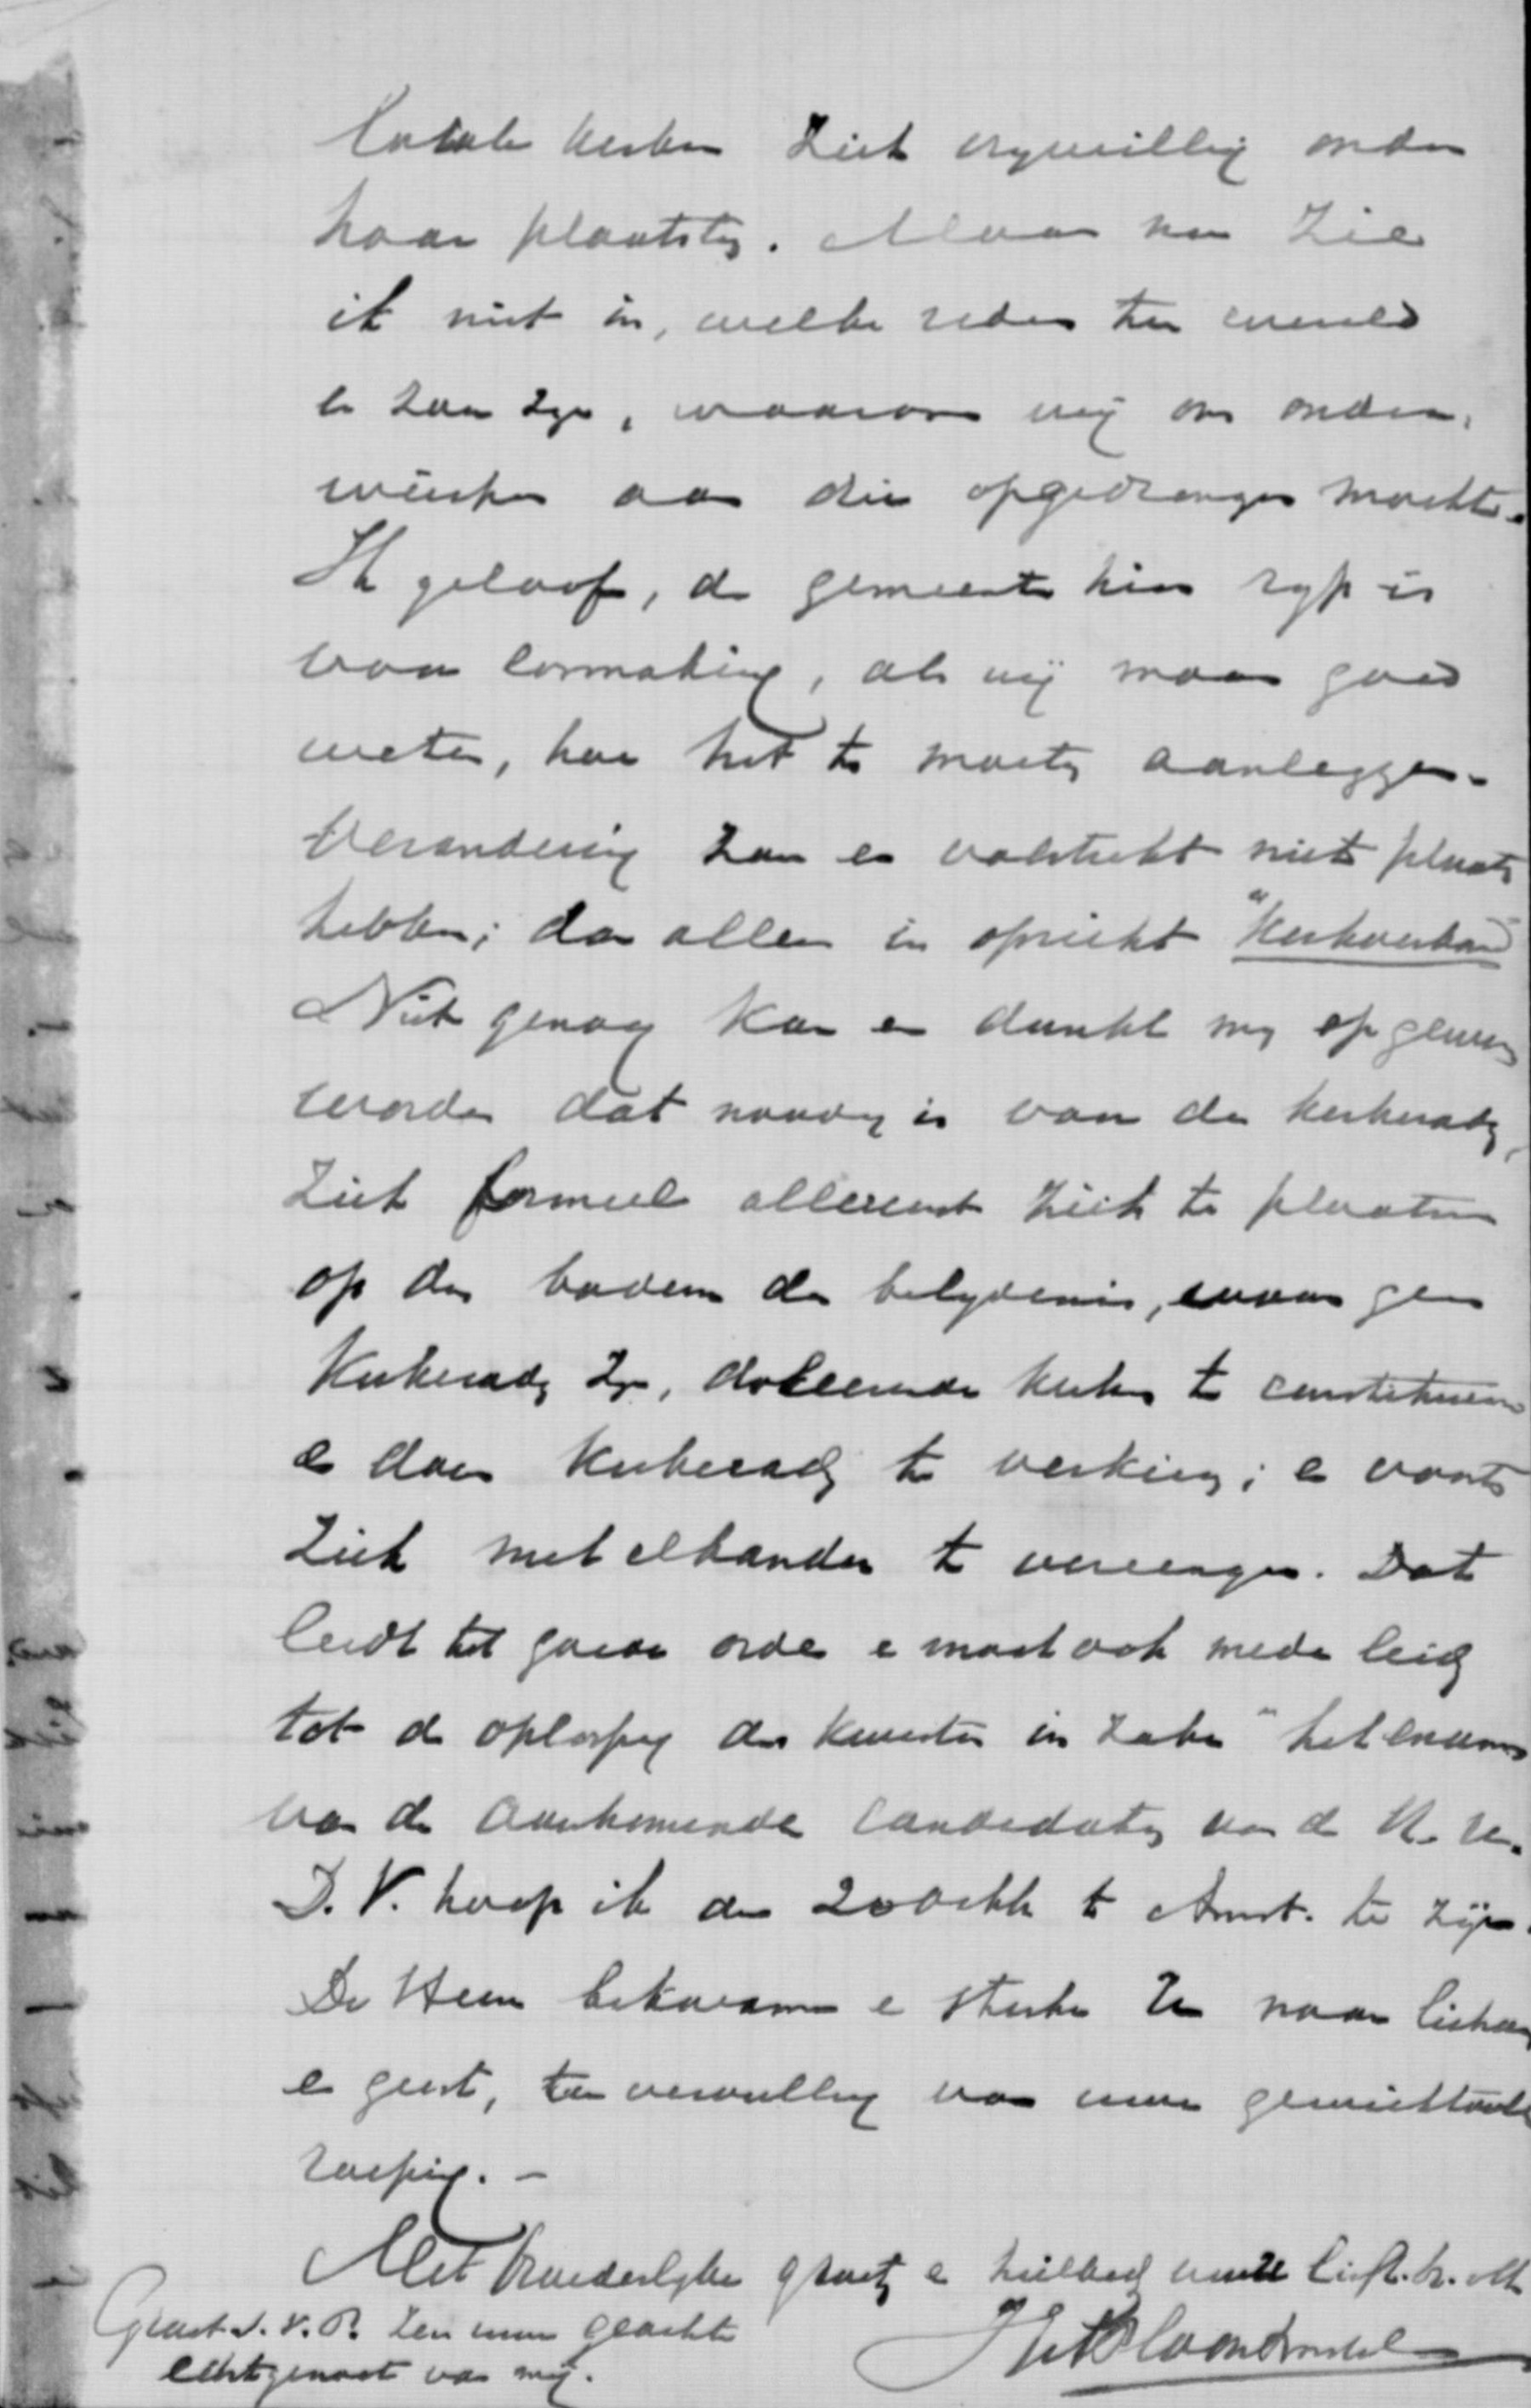 locale kerken zich vrywillig onder
haar plaatsten. Maar nu zie
ik niet in, welke reden ter wereld
er zou zyn, waarom wij ons onder-
wierpen aan die opgedrongen macht.
Ik geloof, de gemeente hier ryp is
voor losmaking, als wij maar goed
weten, hoe het te moeten aanleggen.
Verandering zou er volstrekt niet plaats
hebben; dan alleen in opzicht "Kerkverband"
Niet genoeg kan er dunkt my op gewezen
worden dat noodig is voor de kerkeraden,
zich formeel allereerst zich te plaatsen
op den bodem der belydenis, waar geen
Kerkeraden zyn, doleerende kerken te constitueeren
en daar Kerkeraden te verkiezen; en voorts
zich met elkander te vereenigen. Dat
leidt tot goede orde en moet ook mede leiden
tot de oplossing der kwestie in zake "het examen
van de aankomende candidaten van de V. U.
D.V. hoop ik den 20 te Amst. te zijn.
De Heer bekwame en sterke U naar lichaam
en geest, ter vervulling van uwe gewichtvolle
roeping. –
Met broederlyke groeten en heilbede uw
Groet s.v.p. zeer uwe geachte
echtgenoote van mij.